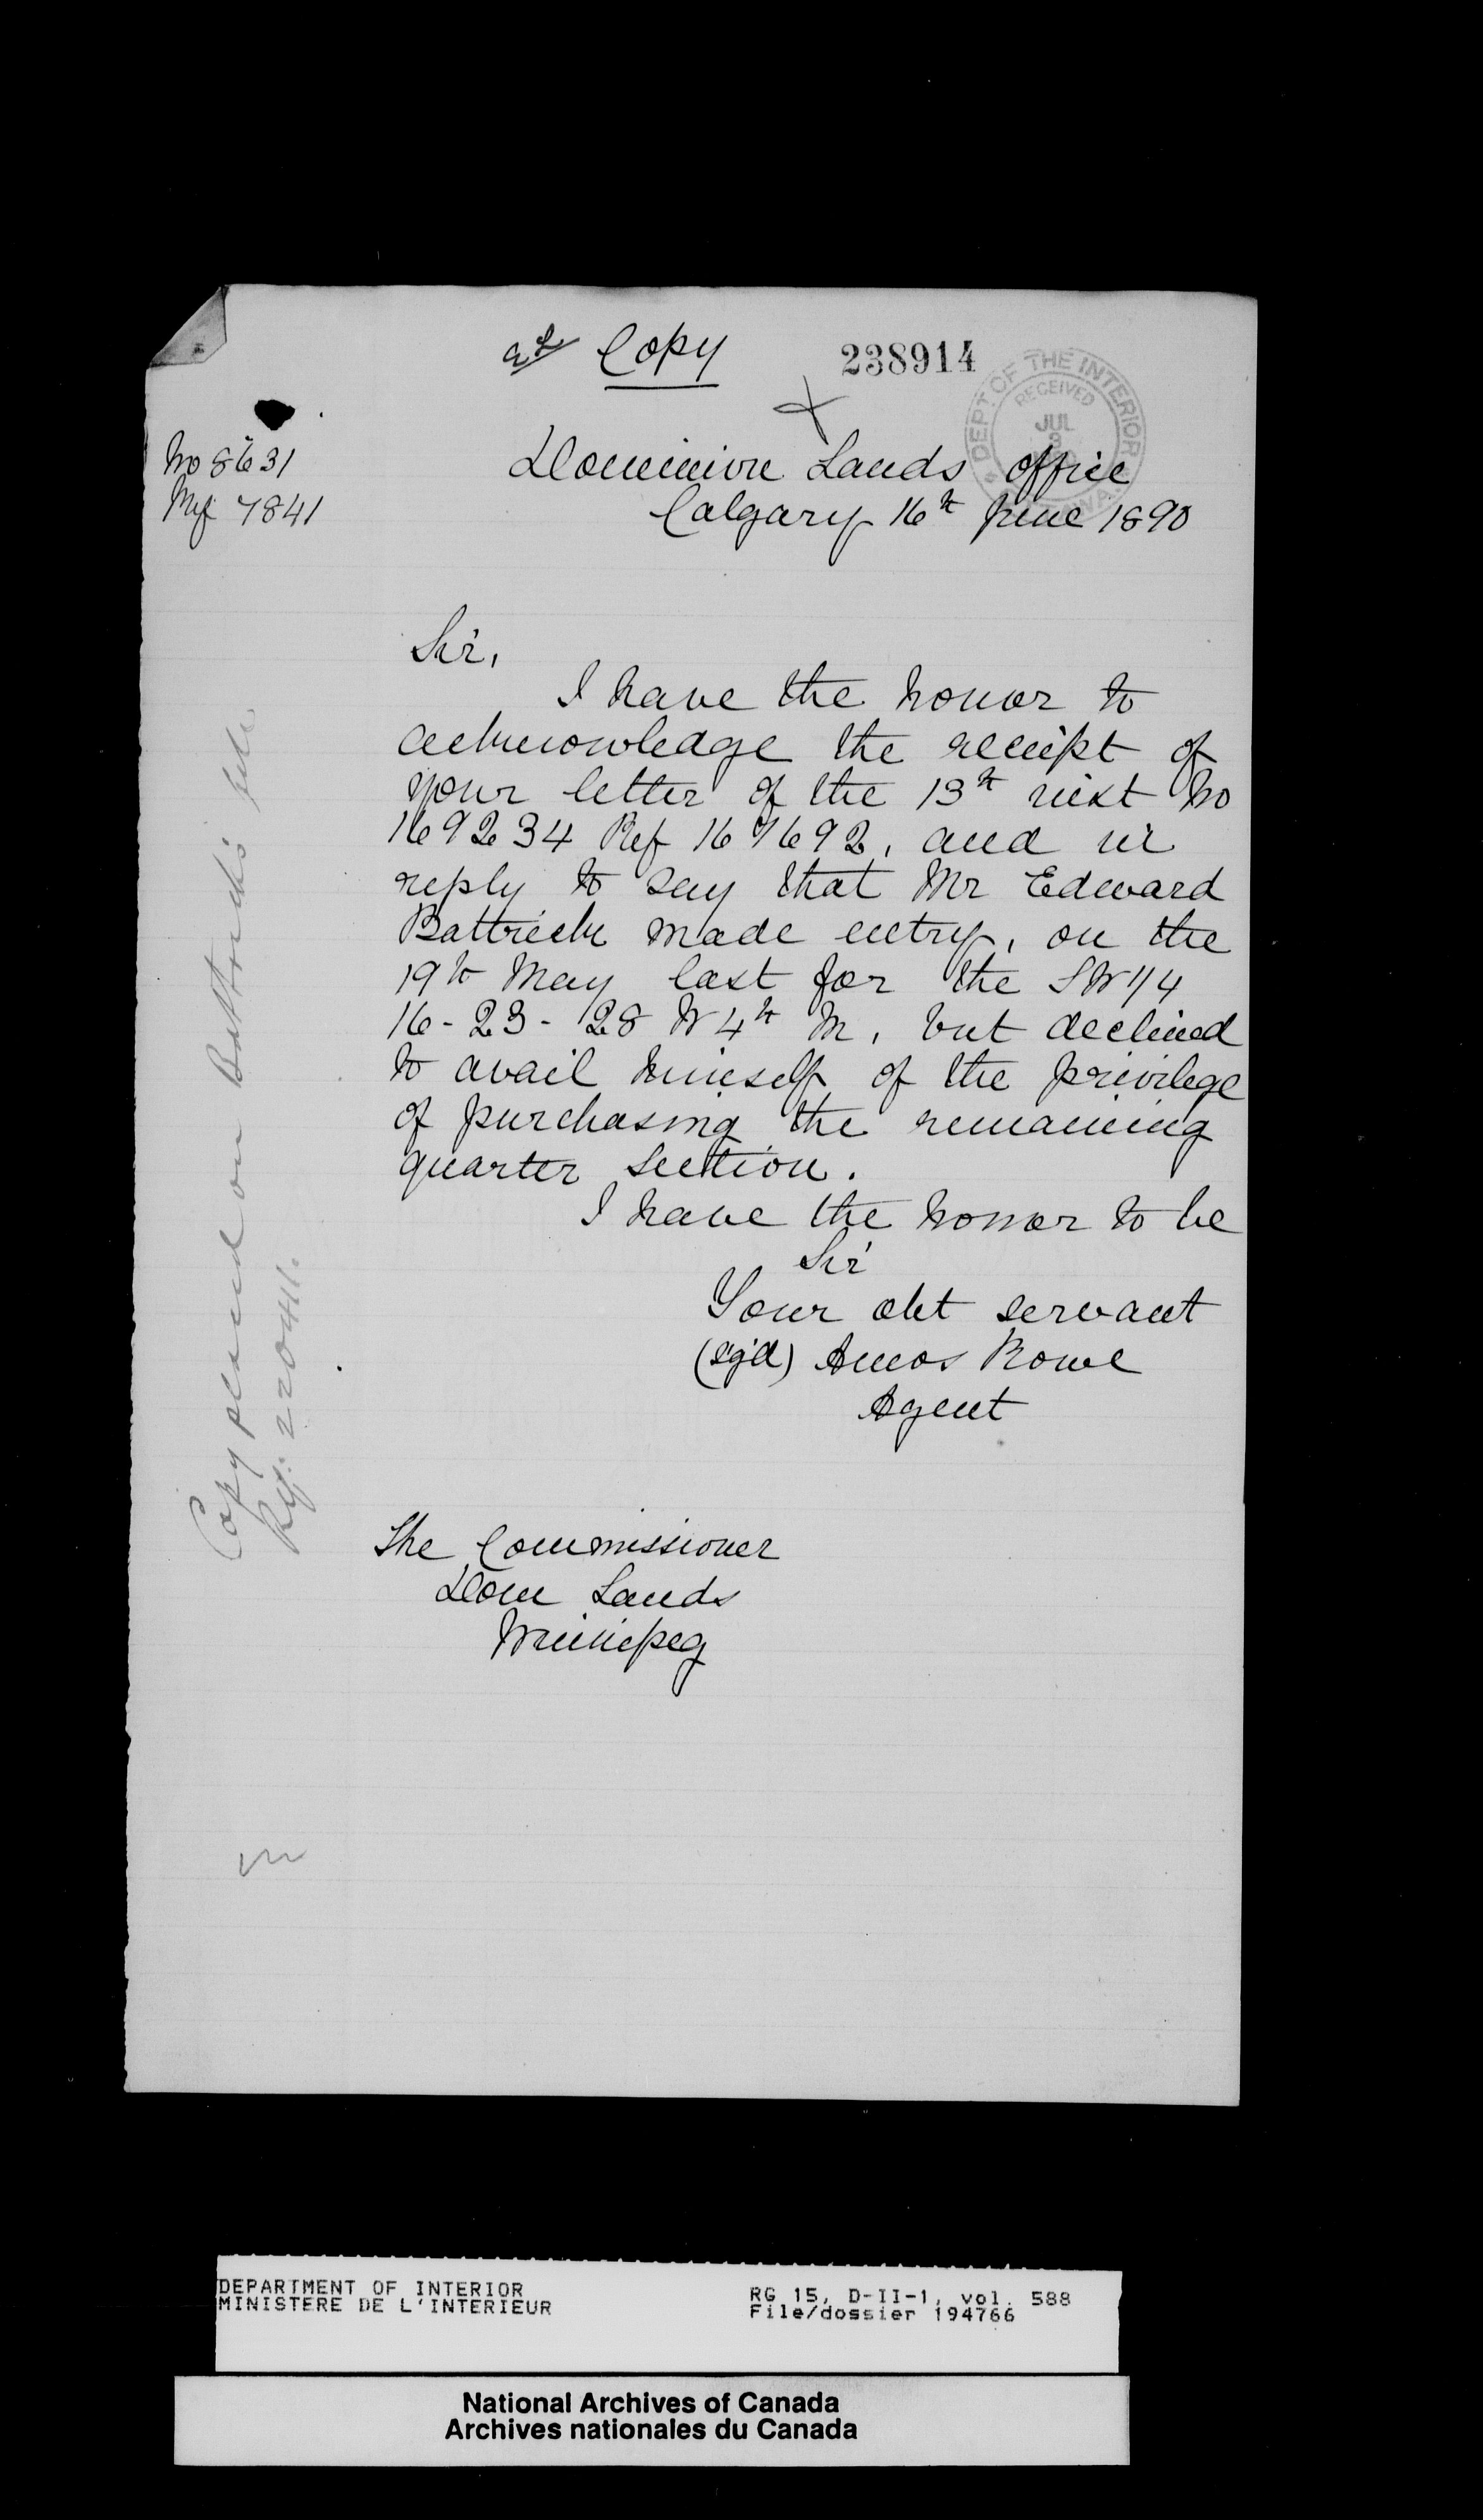 Copy
238914
DEPT. OF THE INTERIOR
RECEIVED
JUL
3
No 8631
Ref 7841
Dominion Lands Office
Calgary 16th June 1890
Sir,
I have the honor to
acknowledge the receipt of
your letter of the 13th inst No
169234 Ref 167692, and in
reply to say that Mr Edward
Battrick made entry, on the
19th May last for the SW 1/4
16-23-28 W 4th M, but declined
to avail himself of the privilege
of purchasing the remaining
quarter section.
I have the honor to be
Sir
Your obt servant
(sg'd) Amos Rowe
Agent
The Commissioner
Dom Lands
Winnipeg
Copy placed on Battrick's file
Ref. 220411.
DEPARTMENT OF INTERIOR
MINISTERE DE L'INTERIEUR
RG 15, D-II-1, vol. 588
File/dossier 194766
National Archives of Canada
Archives nationales du Canada